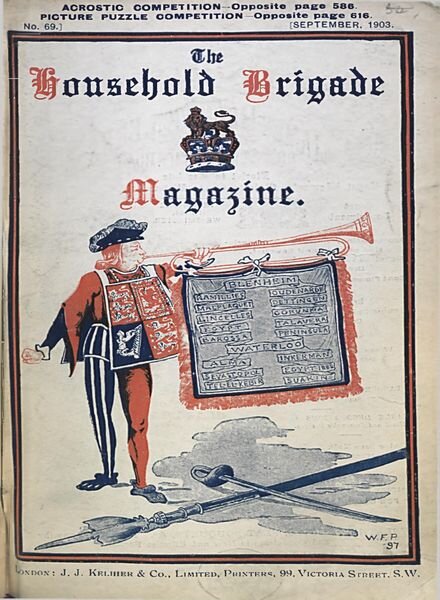 ACROSTIC COMPETITION—Opposite page 586.
PICTURE PUZZLE COMPETITION—Opposite page 616.
No. 69.] [SEPTEMBER, 1903.
The
Household Brigade
Magazine.
BLENHEIM
RAMILLIES OUDENARDE
MALPLAQUET DETTINGEN
LINCELLES CORUNNA
EGYPT TALAVERA
BAROSSA PENINSULA
WATERLOO
ALMA INKERMAN
SEVASTOPOL EGYPT 1882
TEL-EL-KEBIR SUAKIN
W.F.P.
97
LONDON: J. J. KELIHER & CO., LIMITED, PRINTERS, 99, VICTORIA STREET, S.W.